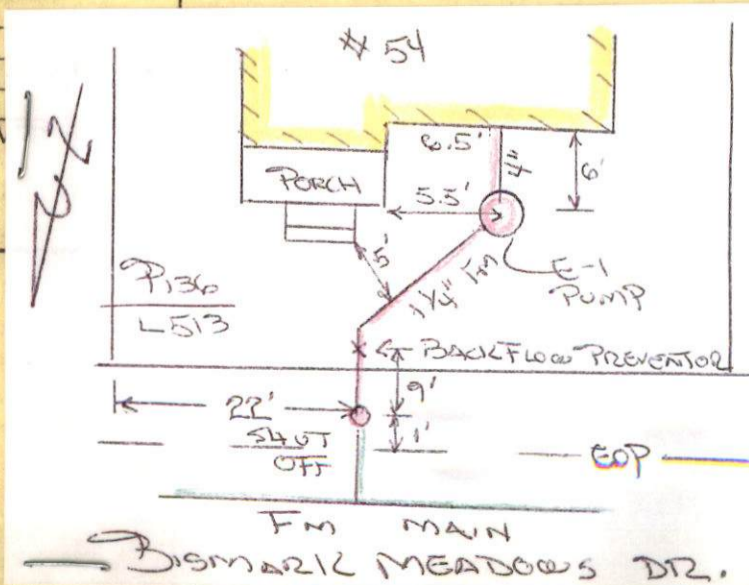 # 54
6.5'
4"
6'
PORCH
5.5'
5'
1 1/4" FM
E-1
PUMP
P136
L513
BACKFLOW PREVENTOR
9'
22'
SHUT
OFF
1'
EOP
FM MAIN
BISMARK MEADOWS DR.